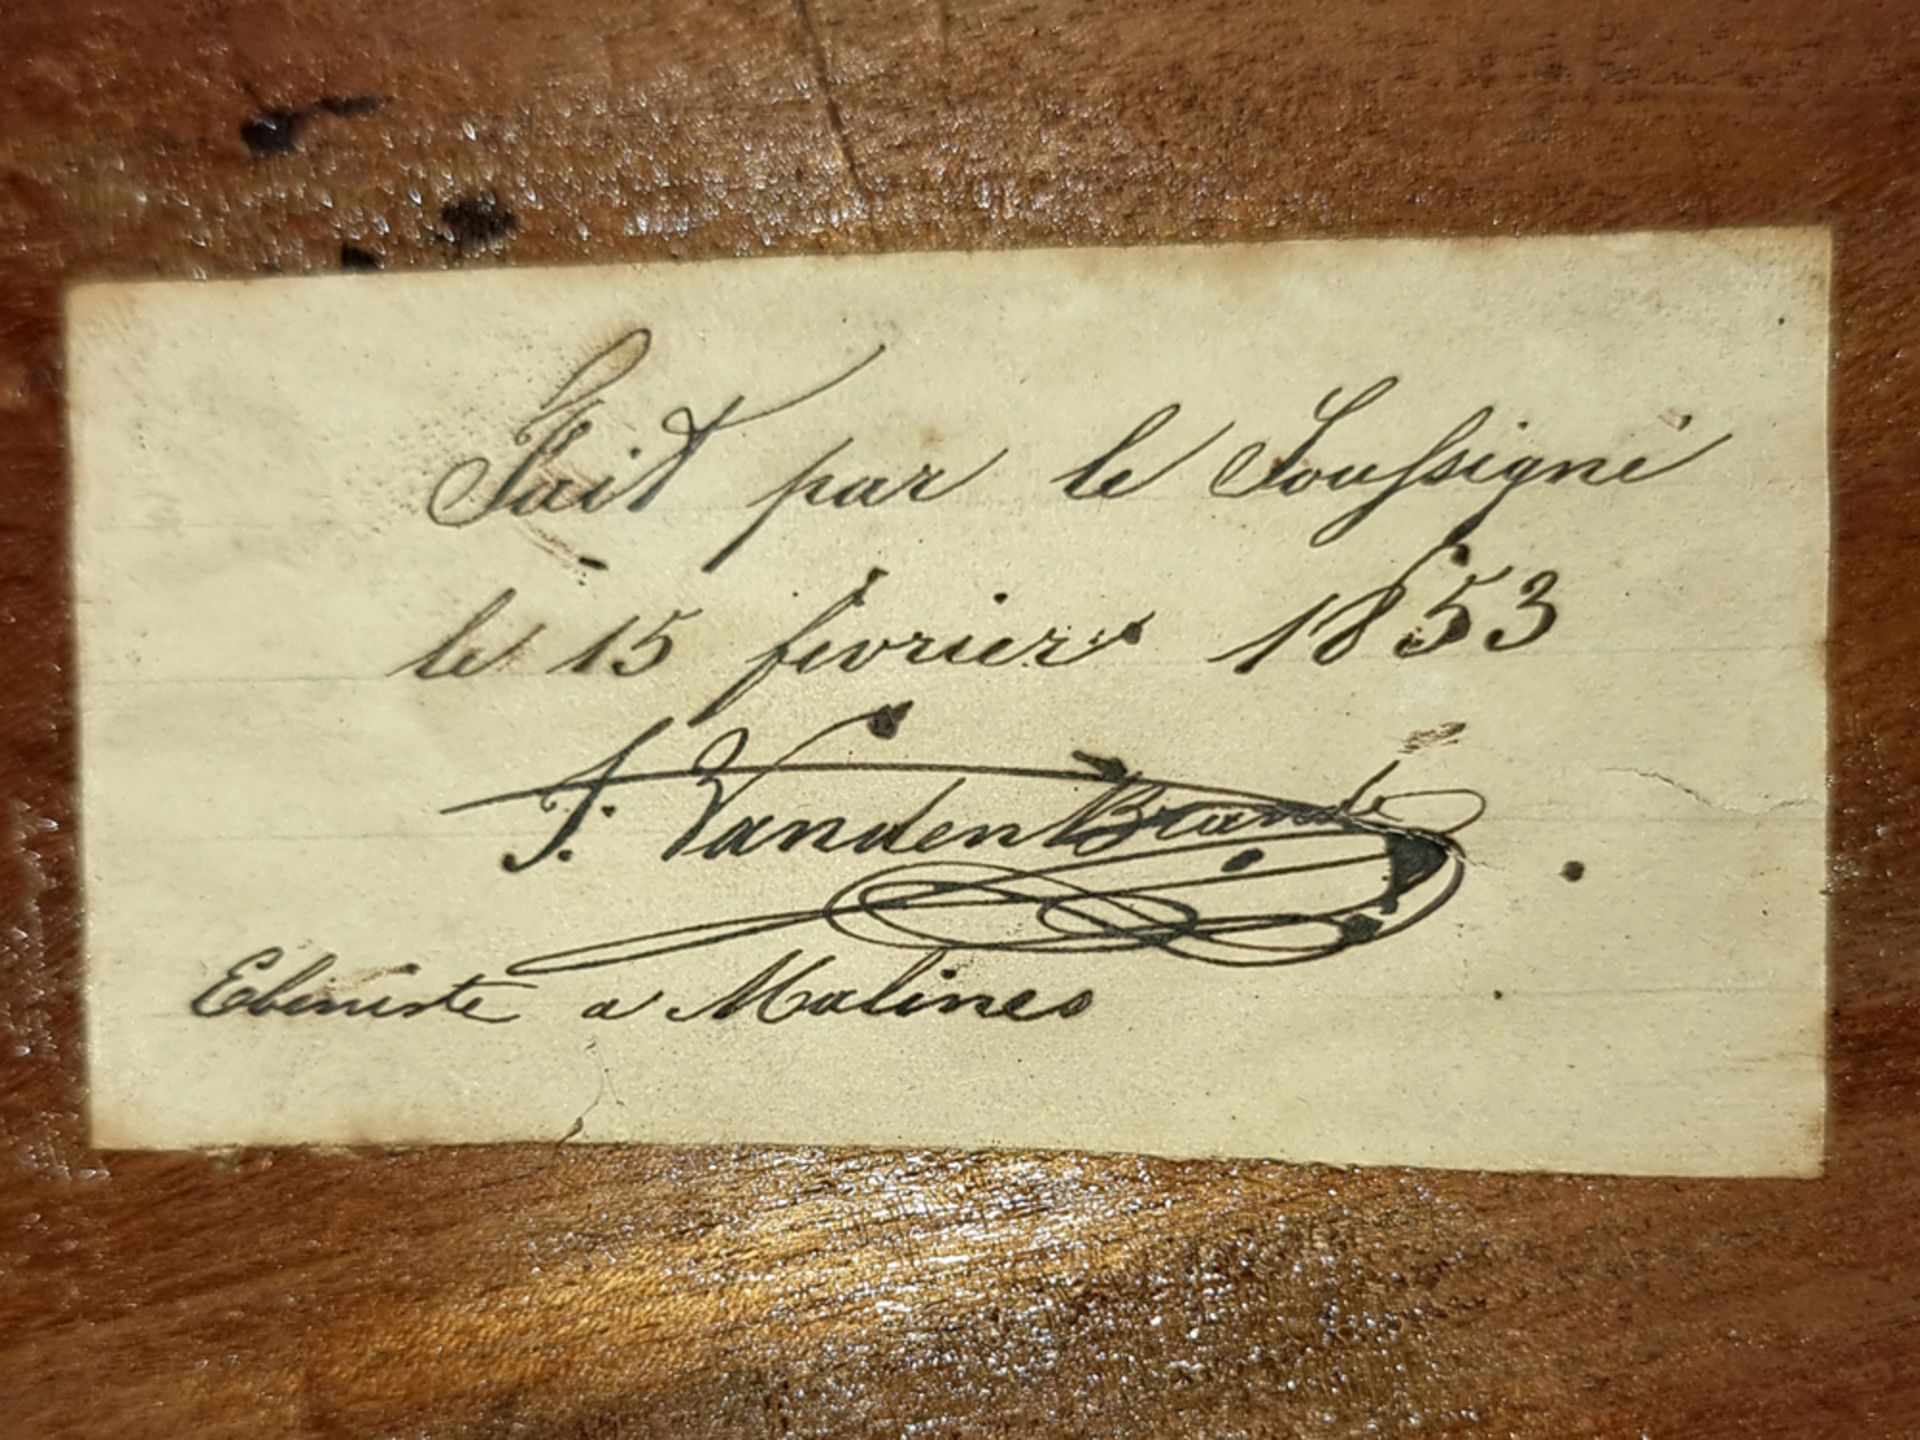 Fait par le Soussigné
le 15 fevrier 1853
J. VandenBrande
Ebeniste a Malines